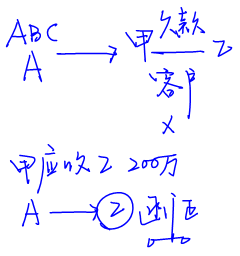 ABC
A → 甲 欠款 乙
客户
×
甲应收乙 200万
A → 乙 函证